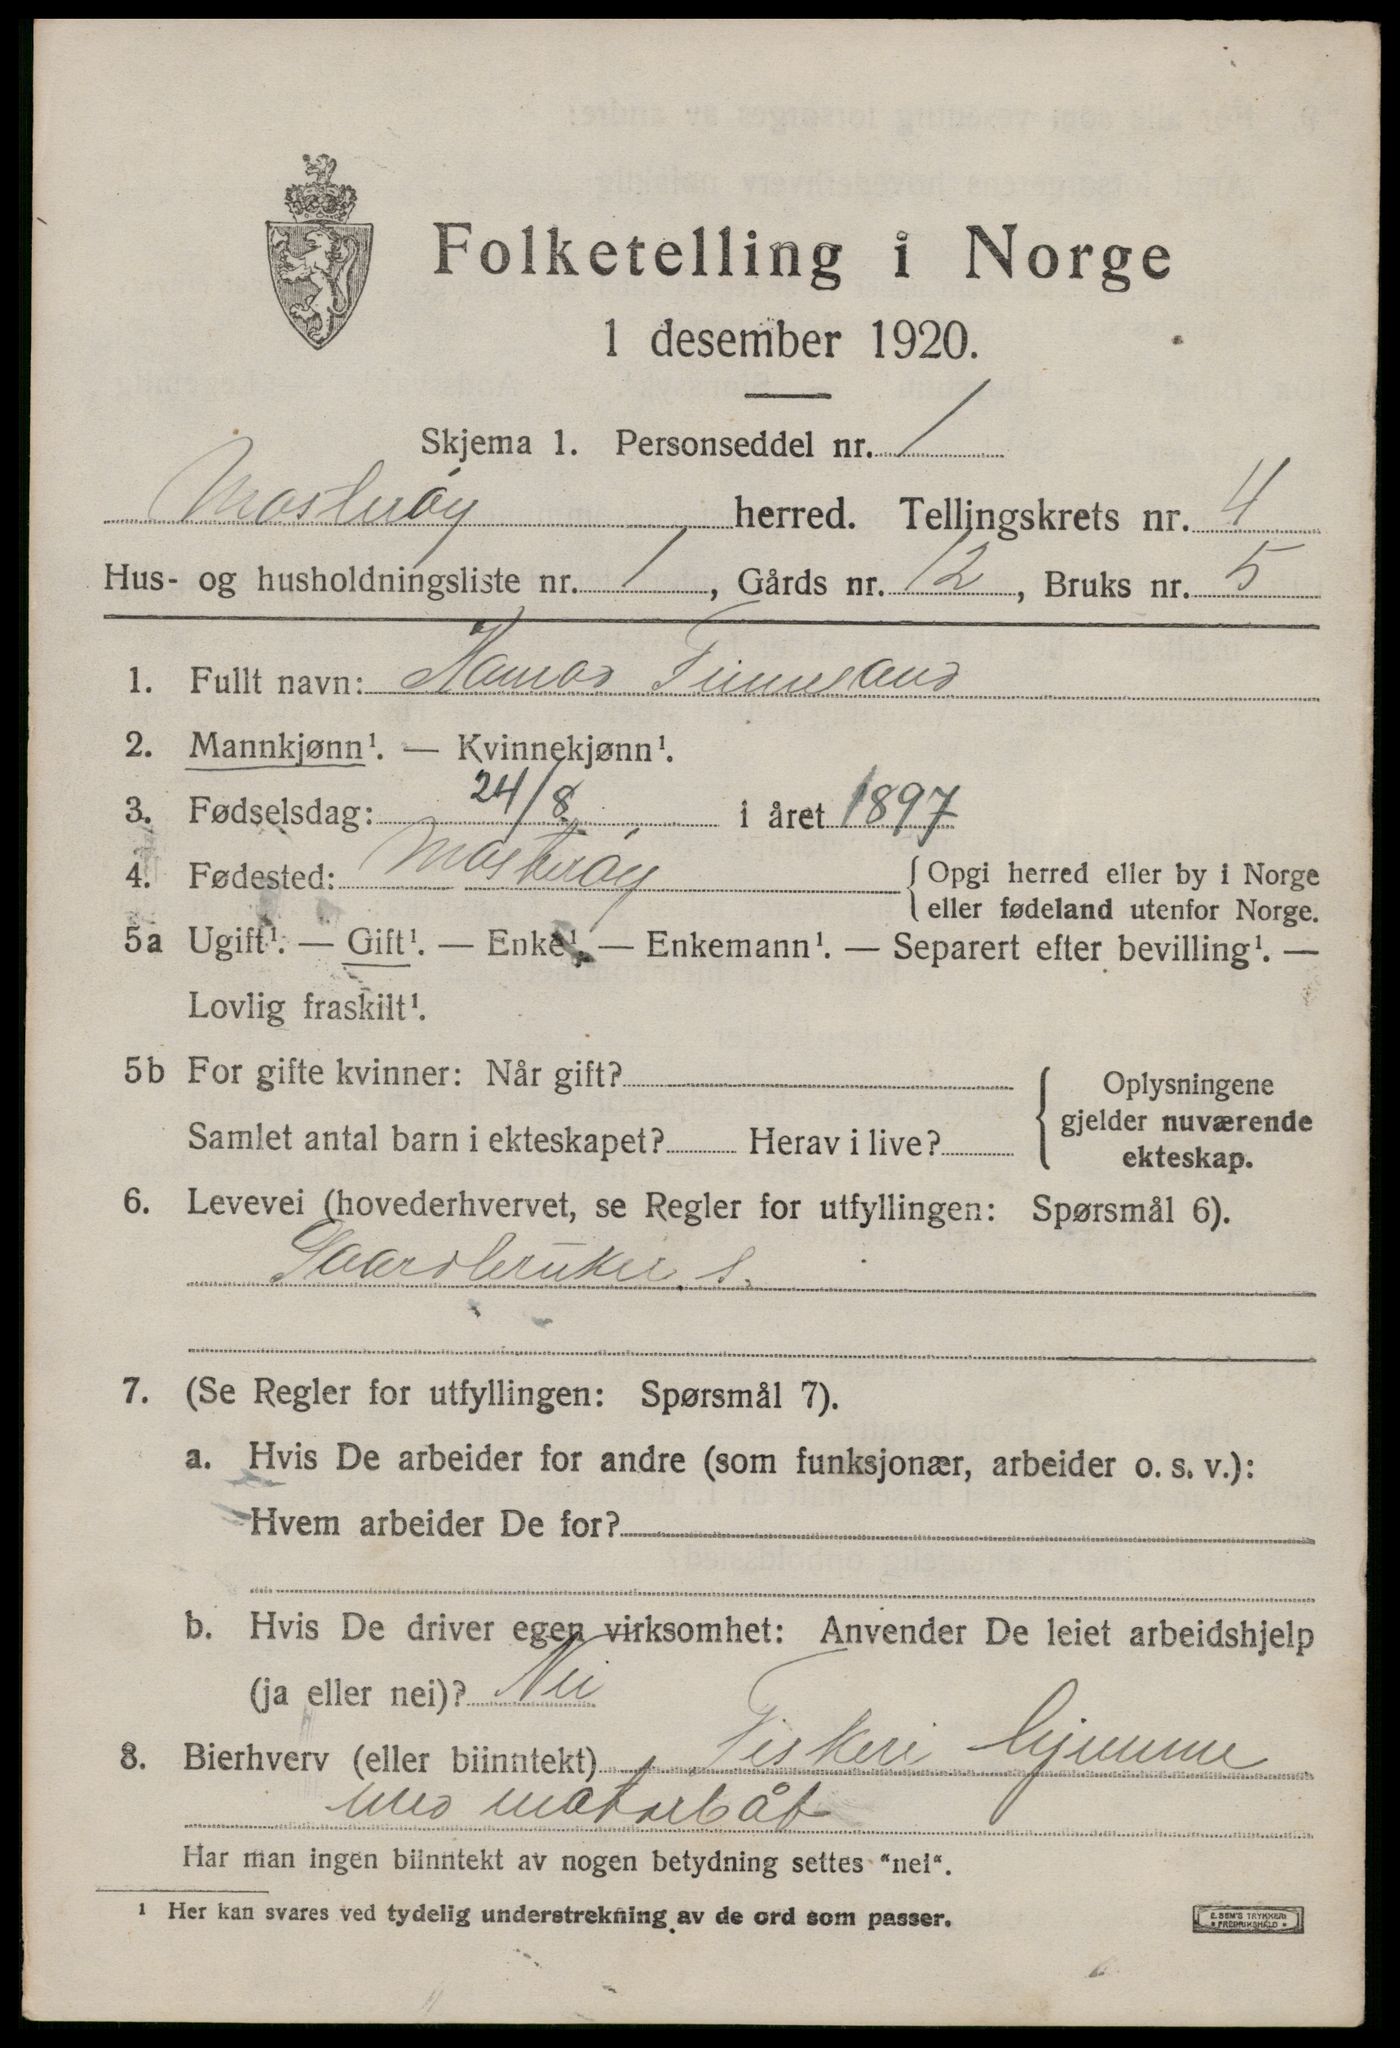 Folketelling i Norge
1 desember 1920.
Skjema 1. Personseddel nr. 1
Mosterøy herred. Tellingskrets nr. 4
Hus- og husholdningsliste nr. 1, Gårds nr. 12, Bruks nr. 5
1. Fullt navn: Finnesand
2. Mannkjønn¹. — Kvinnekjønn¹.
3. Fødselsdag: 24/8 i året 1897
4. Fødested: Mosterøy { Opgi herred eller by i Norge
eller fødeland utenfor Norge.
5a Ugift¹. — Gift¹. — Enke¹. — Enkemann¹. — Separert efter bevilling¹. —
Lovlig fraskilt¹.
5b For gifte kvinner: Når gift? { Oplysningene
gjelder nuværende
Samlet antal barn i ekteskapet? Herav i live? ekteskap.
6. Levevei (hovederhvervet, se Regler for utfyllingen: Spørsmål 6).
Gaardbruker s.
7. (Se Regler for utfyllingen: Spørsmål 7).
a. Hvis De arbeider for andre (som funksjonær, arbeider o. s. v.):
Hvem arbeider De for?
b. Hvis De driver egen virksomhet: Anvender De leiet arbeidshjelp
(ja eller nei)? Nei
8. Bierhverv (eller biinntekt) Fiskeri hjemme
med motorbåt
Har man ingen biinntekt av nogen betydning settes "nei".
¹ Her kan svares ved tydelig understrekning av de ord som passer.
E. SEM'S TRYKKERI
FREDRIKSHALD